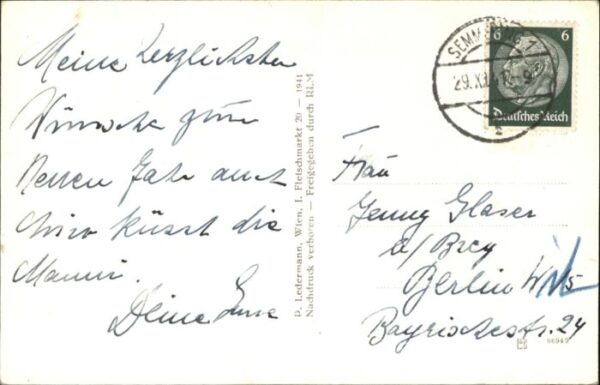 Meine herzlichsten
Wünsche zum
Neuen Jahr auch
küsst die
Mammi.
Deine
P. Ledermann, Wien, I. Fleischmarkt 20 — 1941
Nachdruck verboten — Freigegeben durch RLM
SEMMERING 1
29.XII.41
6 6
Deutsches Reich
Frau
Jenny Glaser
a/ Brey
Berlin W 15
Bayrischestr. 24